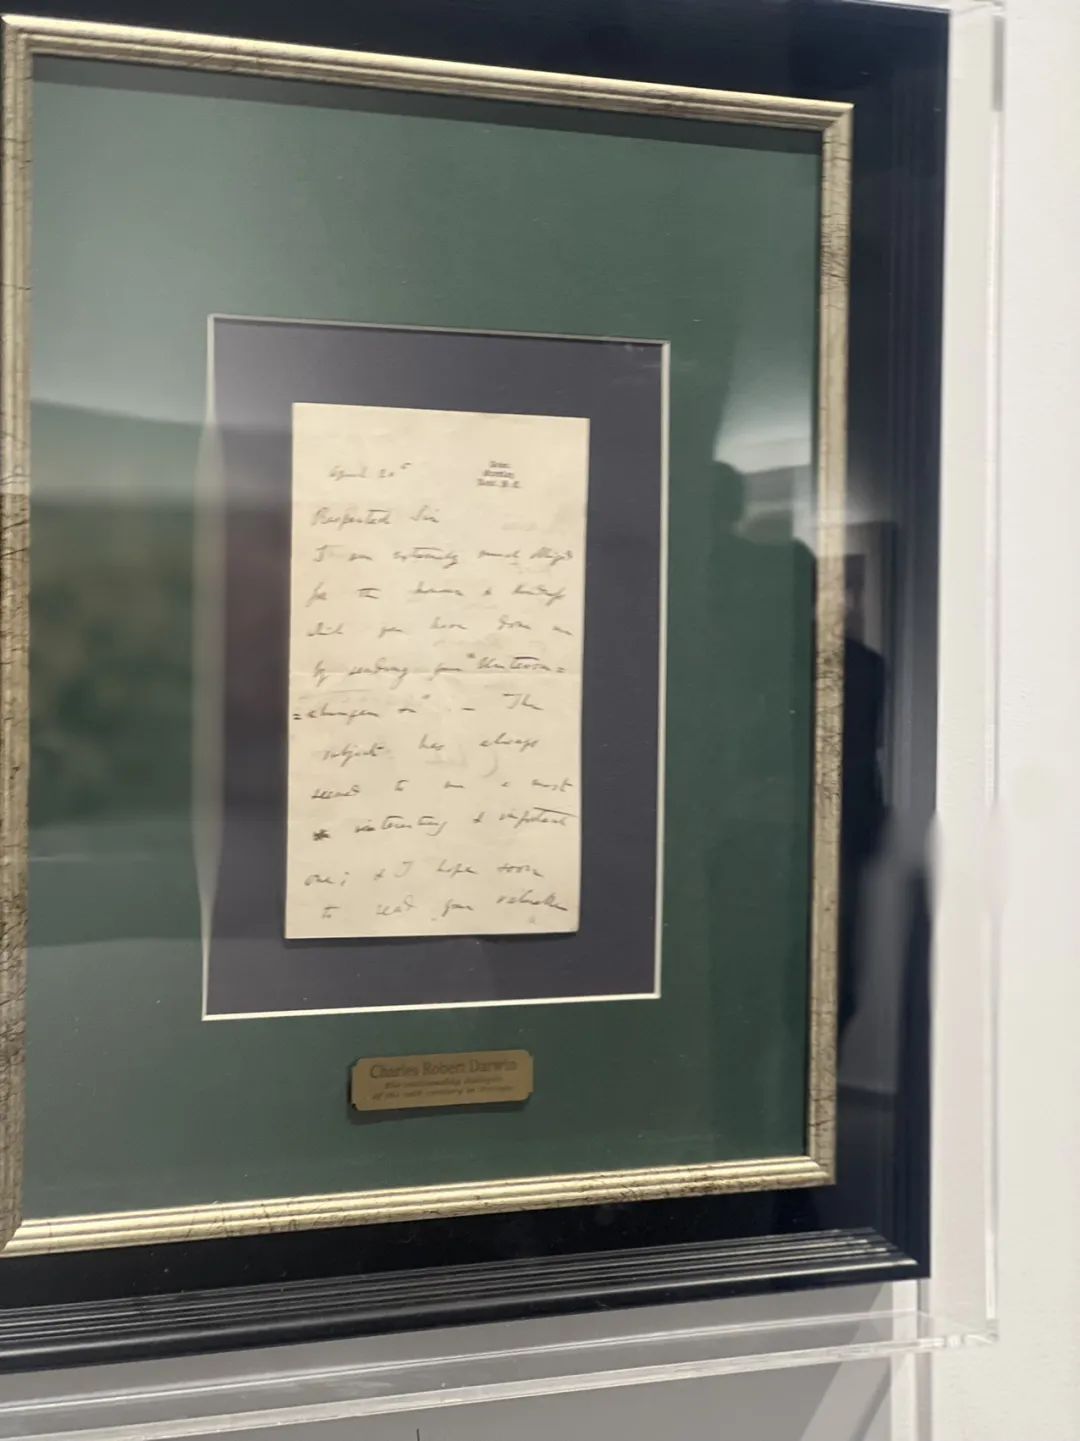 April 20th
Down.
Respected Sir
I am extremely much obliged
for the honour & kindness
which you have done me
by sending your "Untersu=
=chungen
". — The
subject has always
seemed to me a most
interesting & important
one; & I hope soon
to read your valuable
Charles Robert Darwin
of the 19th century